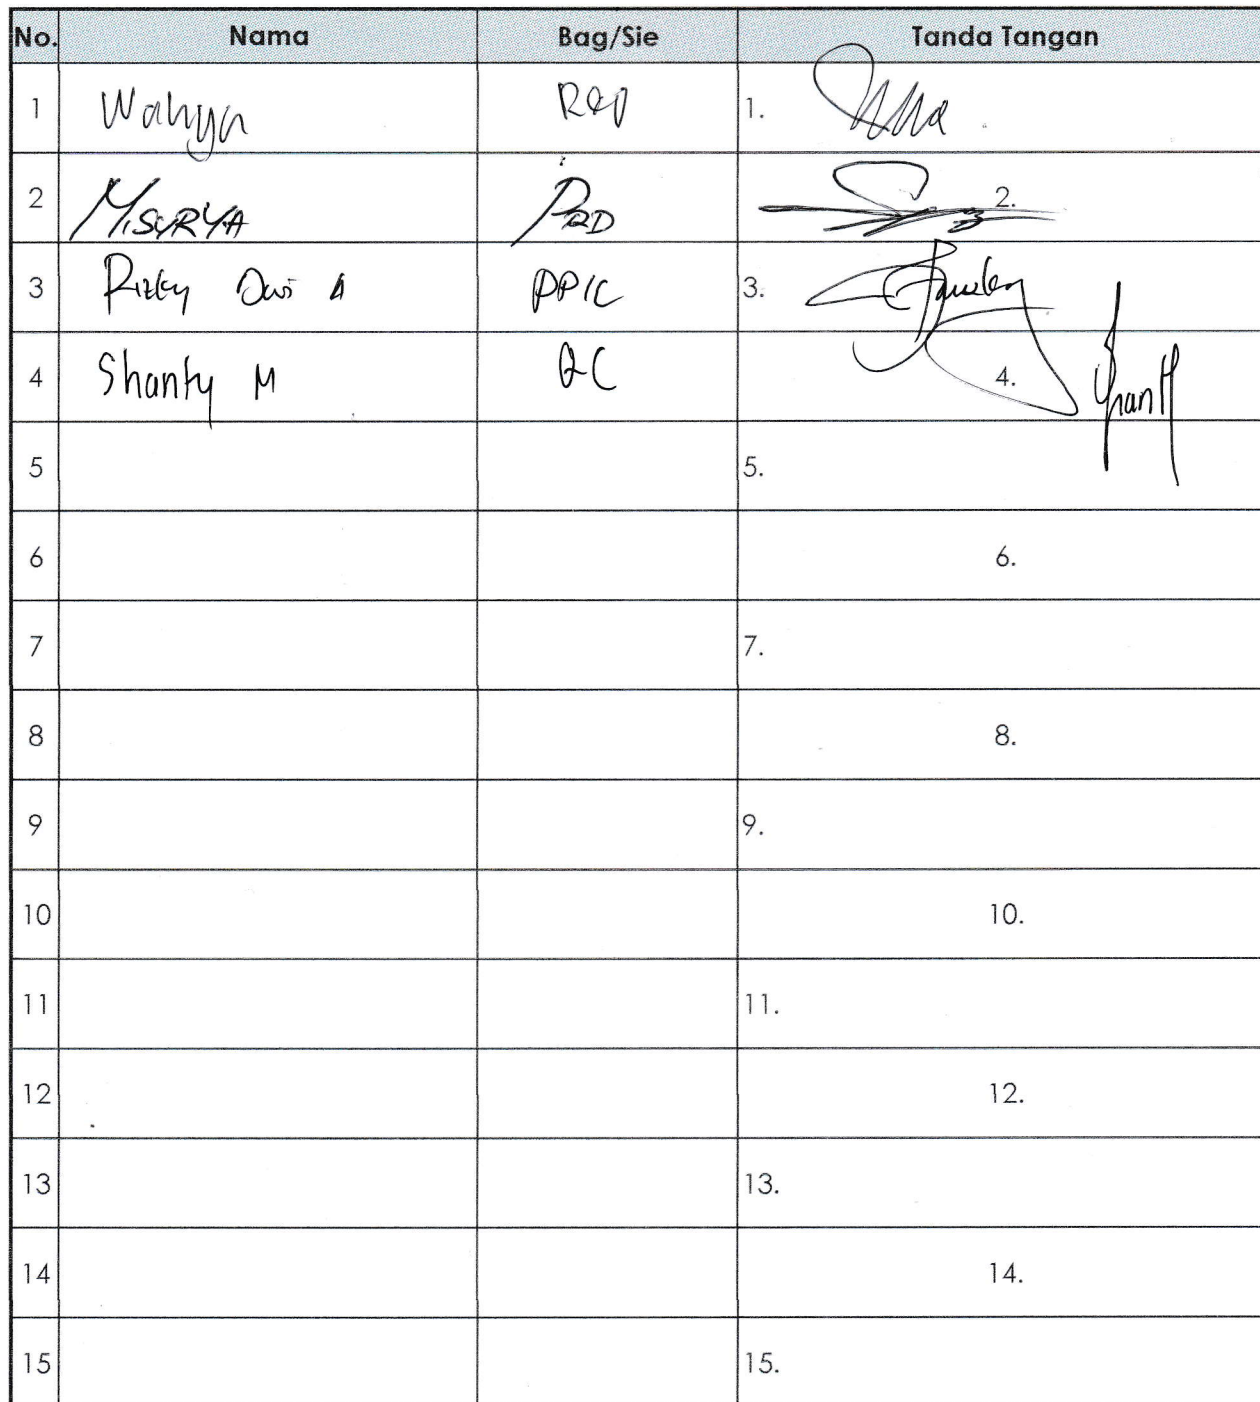 No. Nama Bag/Sie Tanda Tangan
1 Wahyu R&D 1.
2 M.SURYA PRD 2.
3 Rizky Dwi A PPIC 3.
4 Shanty M QC 4.
5 5.
6 6.
7 7.
8 8.
9 9.
10 10.
11 11.
12 12.
13 13.
14 14.
15 15.